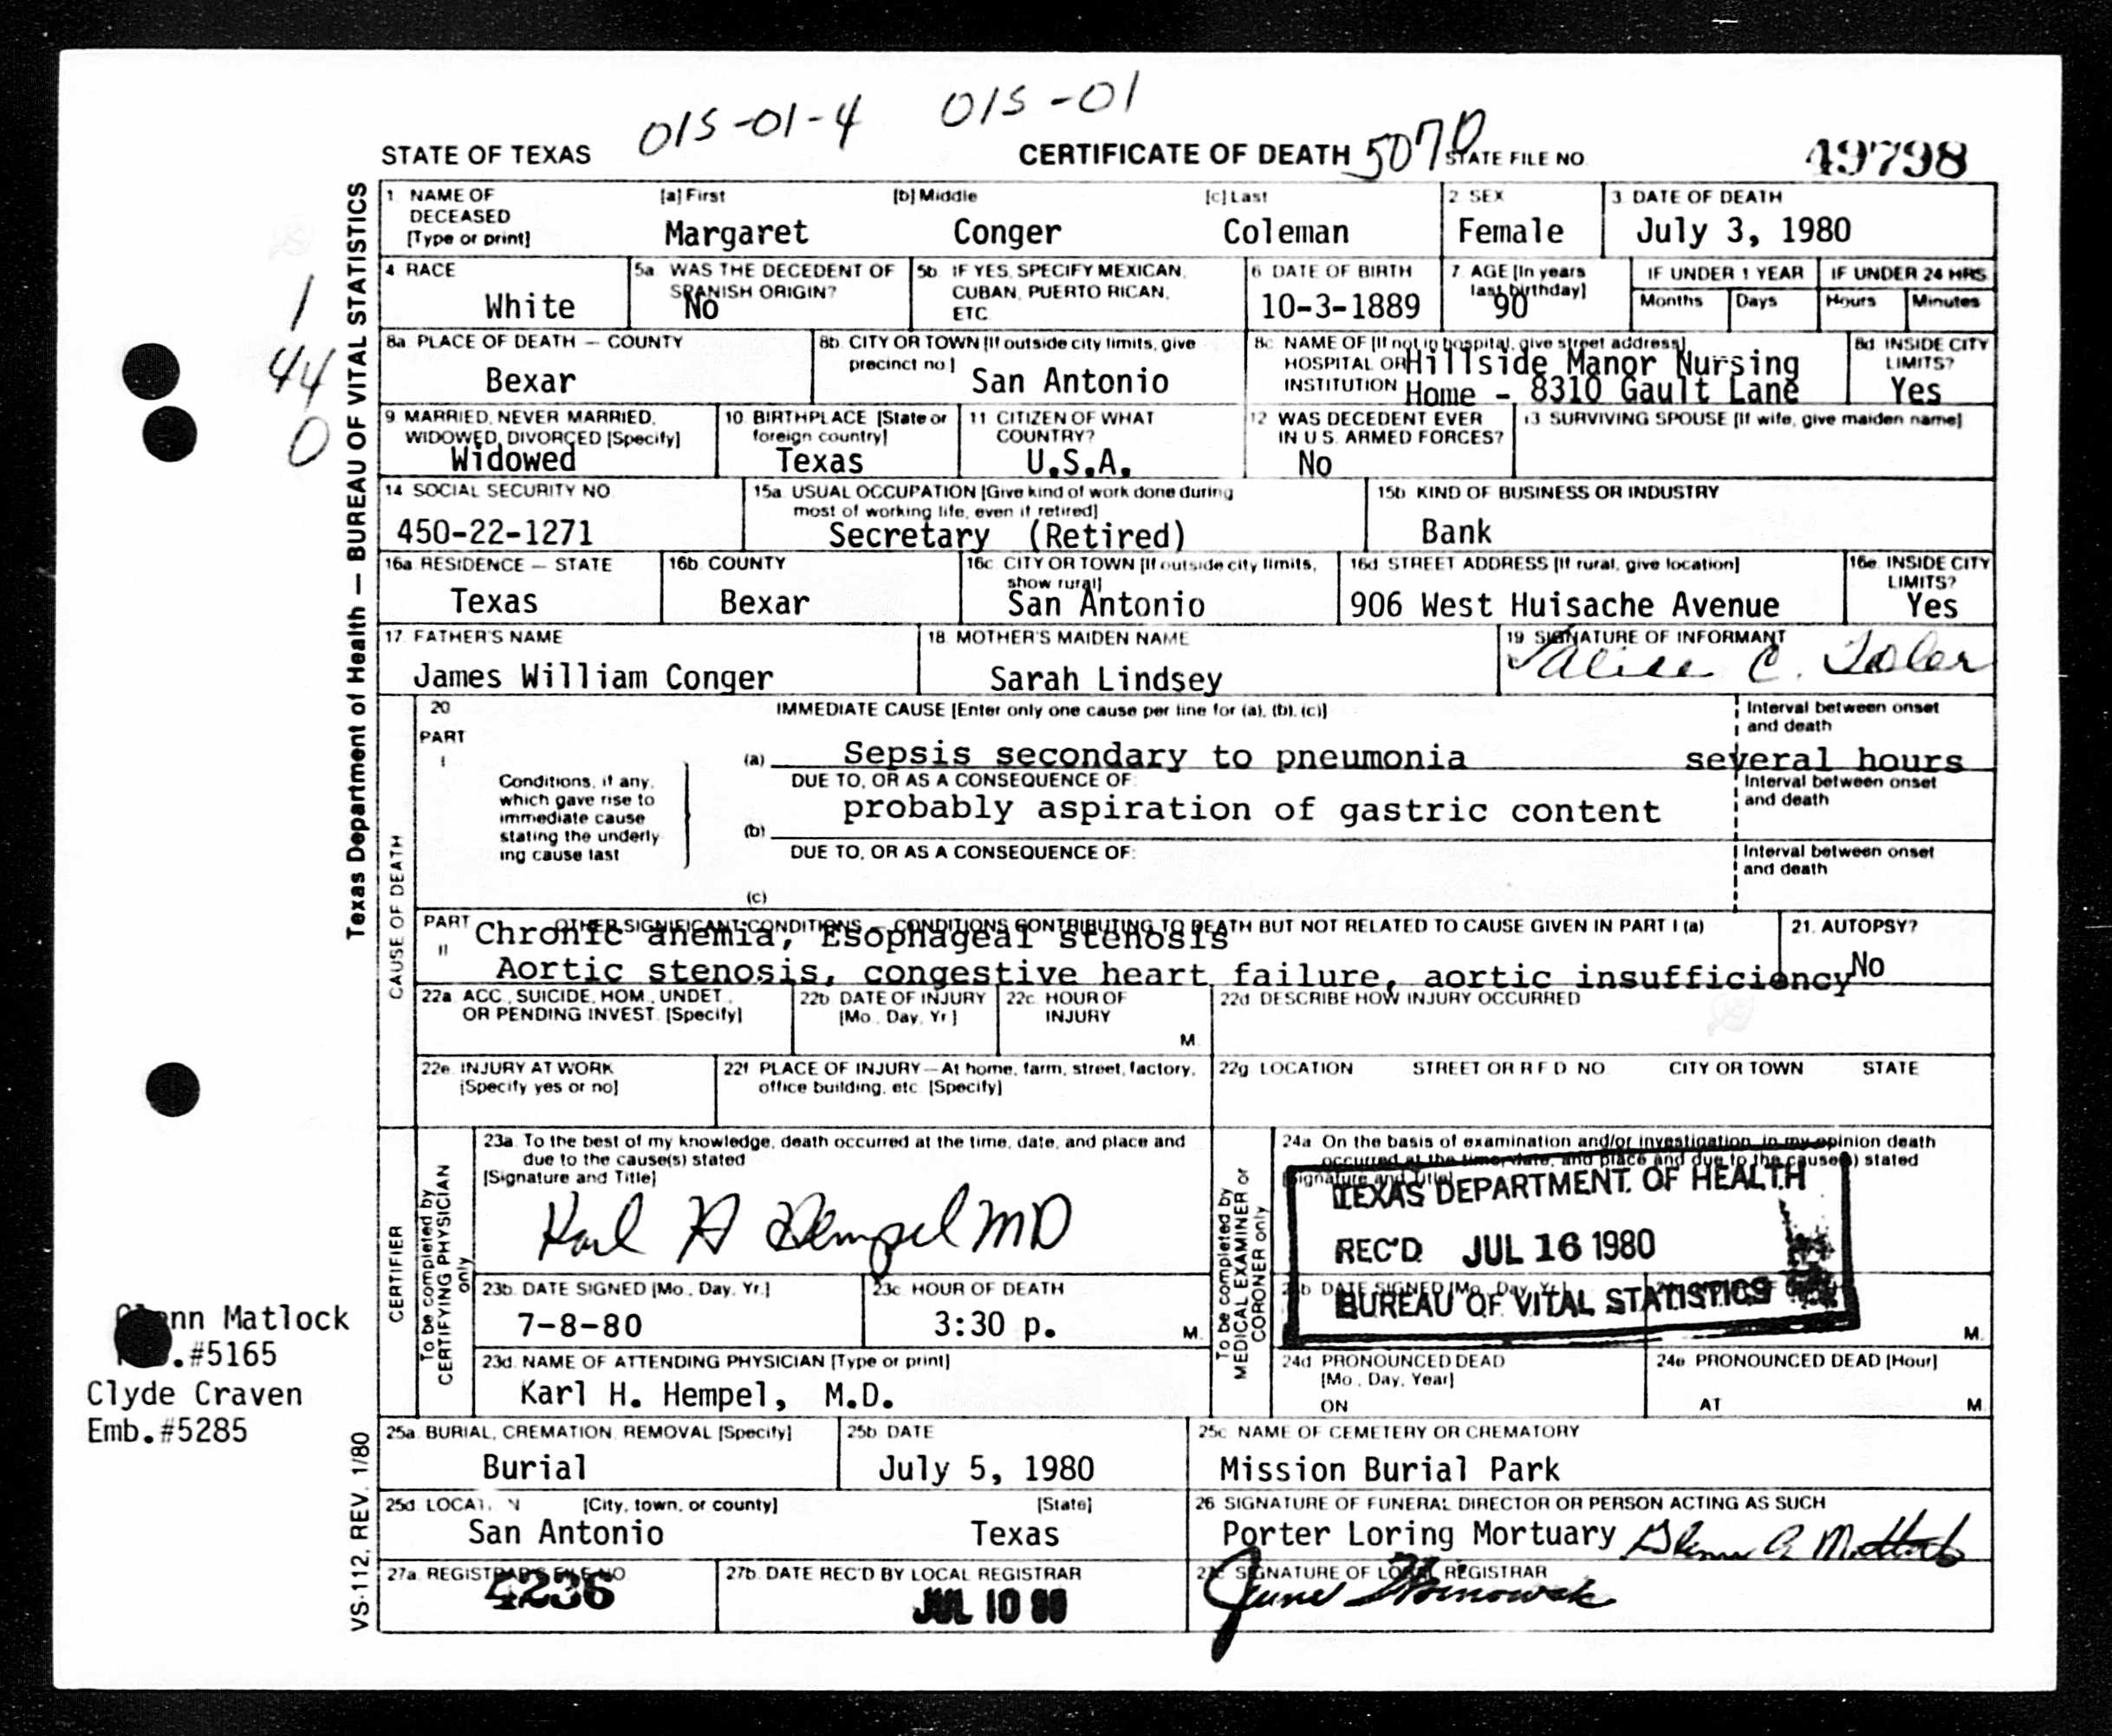 015-01-4 015-01
STATE OF TEXAS CERTIFICATE OF DEATH 5070 STATE FILE NO. 49798
Texas Department of Health — BUREAU OF VITAL STATISTICS
1 44 0
1 NAME OF DECEASED [Type or print] [a] First [b] Middle [c] Last 2 SEX 3 DATE OF DEATH
Margaret Conger Coleman Female July 3, 1980
4 RACE 5a WAS THE DECEDENT OF SPANISH ORIGIN? 5b IF YES, SPECIFY MEXICAN, CUBAN, PUERTO RICAN, ETC 6 DATE OF BIRTH 7 AGE [In years last birthday] IF UNDER 1 YEAR IF UNDER 24 HRS
Months Days Hours Minutes
White No 10-3-1889 90
8a PLACE OF DEATH — COUNTY 8b CITY OR TOWN [If outside city limits, give precinct no] 8c NAME OF [If not in hospital, give street address] HOSPITAL OR INSTITUTION 8d INSIDE CITY LIMITS?
Bexar San Antonio Hillside Manor Nursing Home - 8310 Gault Lane Yes
9 MARRIED, NEVER MARRIED, WIDOWED, DIVORCED [Specify] 10 BIRTHPLACE [State or foreign country] 11 CITIZEN OF WHAT COUNTRY? 12 WAS DECEDENT EVER IN U.S. ARMED FORCES? 13 SURVIVING SPOUSE [If wife, give maiden name]
Widowed Texas U.S.A. No
14 SOCIAL SECURITY NO 15a USUAL OCCUPATION [Give kind of work done during most of working life, even if retired] 15b KIND OF BUSINESS OR INDUSTRY
450-22-1271 Secretary (Retired) Bank
16a RESIDENCE — STATE 16b COUNTY 16c CITY OR TOWN [If outside city limits, show rural] 16d STREET ADDRESS [If rural, give location] 16e INSIDE CITY LIMITS?
Texas Bexar San Antonio 906 West Huisache Avenue Yes
17 FATHER'S NAME 18 MOTHER'S MAIDEN NAME 19 SIGNATURE OF INFORMANT
James William Conger Sarah Lindsey C.
CAUSE OF DEATH
20 IMMEDIATE CAUSE [Enter only one cause per line for (a), (b), (c)] Interval between onset and death
PART I
(a) Sepsis secondary to pneumonia several hours
Conditions, if any, which gave rise to immediate cause stating the underlying cause last
DUE TO, OR AS A CONSEQUENCE OF: Interval between onset and death
(b) probably aspiration of gastric content
DUE TO, OR AS A CONSEQUENCE OF: Interval between onset and death
(c)
PART II OTHER SIGNIFICANT CONDITIONS — CONDITIONS CONTRIBUTING TO DEATH BUT NOT RELATED TO CAUSE GIVEN IN PART I (a) 21. AUTOPSY?
Chronic anemia, Esophageal stenosis
Aortic stenosis, congestive heart failure, aortic insufficiency No
22a ACC., SUICIDE, HOM., UNDET., OR PENDING INVEST. [Specify] 22b DATE OF INJURY [Mo., Day, Yr.] 22c HOUR OF INJURY M 22d DESCRIBE HOW INJURY OCCURRED
22e INJURY AT WORK [Specify yes or no] 22f PLACE OF INJURY—At home, farm, street, factory, office building, etc [Specify] 22g LOCATION STREET OR R F D NO CITY OR TOWN STATE
CERTIFIER
To be completed by CERTIFYING PHYSICIAN only
23a To the best of my knowledge, death occurred at the time, date, and place and due to the cause(s) stated
[Signature and Title]
Karl H Hempel MD
23b DATE SIGNED [Mo., Day, Yr.] 23c HOUR OF DEATH
7-8-80 3:30 p. M.
23d NAME OF ATTENDING PHYSICIAN [Type or print]
Karl H. Hempel, M.D.
To be completed by MEDICAL EXAMINER or CORONER only
24a On the basis of examination and/or investigation, in my opinion death occurred at the time, date, and place and due to the cause(s) stated
[Signature and Title]
TEXAS DEPARTMENT OF HEALTH
REC'D JUL 16 1980
BUREAU OF VITAL STATISTICS
DATE SIGNED [Mo., Day, Yr.] M.
24d PRONOUNCED DEAD [Mo., Day, Year] ON 24e PRONOUNCED DEAD [Hour] AT M
nn Matlock
.#5165
Clyde Craven
Emb.#5285
25a BURIAL, CREMATION, REMOVAL [Specify] 25b DATE 25c NAME OF CEMETERY OR CREMATORY
Burial July 5, 1980 Mission Burial Park
25d [City, town, or county] [State] 26 SIGNATURE OF FUNERAL DIRECTOR OR PERSON ACTING AS SUCH
San Antonio Texas Porter Loring Mortuary Glenn A Matlock
27a REGISTRAR'S FILE NO 27b DATE REC'D BY LOCAL REGISTRAR SIGNATURE OF LOCAL REGISTRAR
4236 JUL 10 80 June
VS-112, REV. 1/80